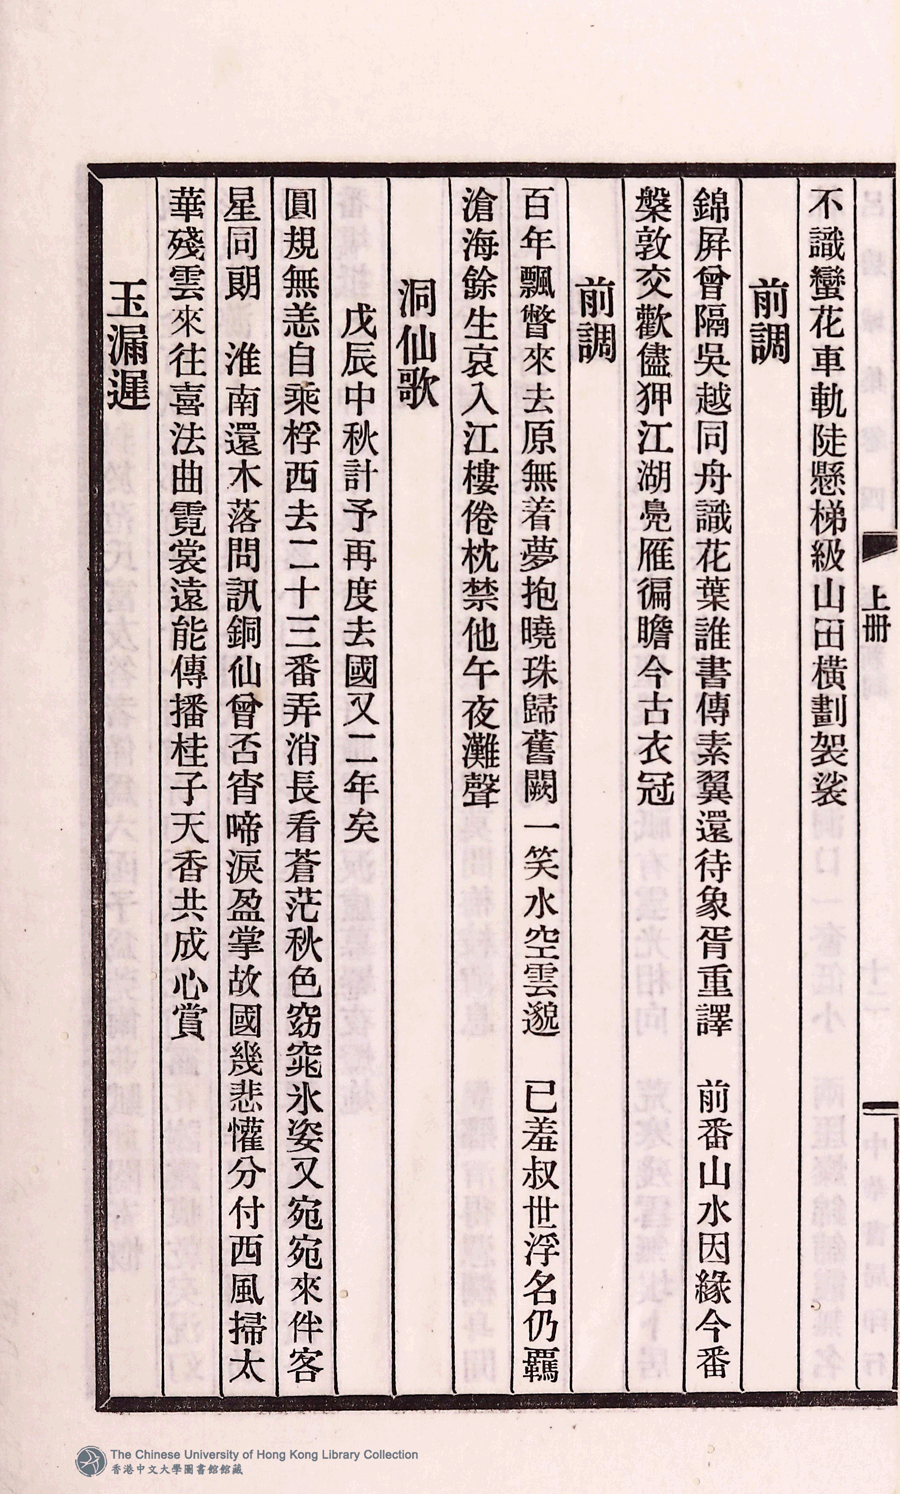 不識蠻花車軌陡懸梯級山田橫劃袈裟
前調
錦屏曾隔吳越同舟識花葉誰書傳素翼還待象胥重譯　前番山水因緣今番
槃敦交歡儘狎江湖鳧雁徧瞻今古衣冠
前調
百年飄瞥來去原無着夢抱曉珠歸舊闕一笑水空雲邈　已羞叔世浮名仍羈
滄海餘生哀入江樓倦枕禁他午夜灘聲
洞仙歌
戊辰中秋計予再度去國又二年矣
圓規無恙自乘桴西去二十三番弄消長看蒼茫秋色窈窕氷姿又宛宛來伴客
星同朗　淮南還木落問訊銅仙曾否宵啼淚盈掌故國幾悲懽分付西風掃太
華殘雲來往喜法曲霓裳遠能傳播桂子天香共成心賞
玉漏遲
上冊
The Chinese University of Hong Kong Library Collection
香港中文大學圖書館館藏